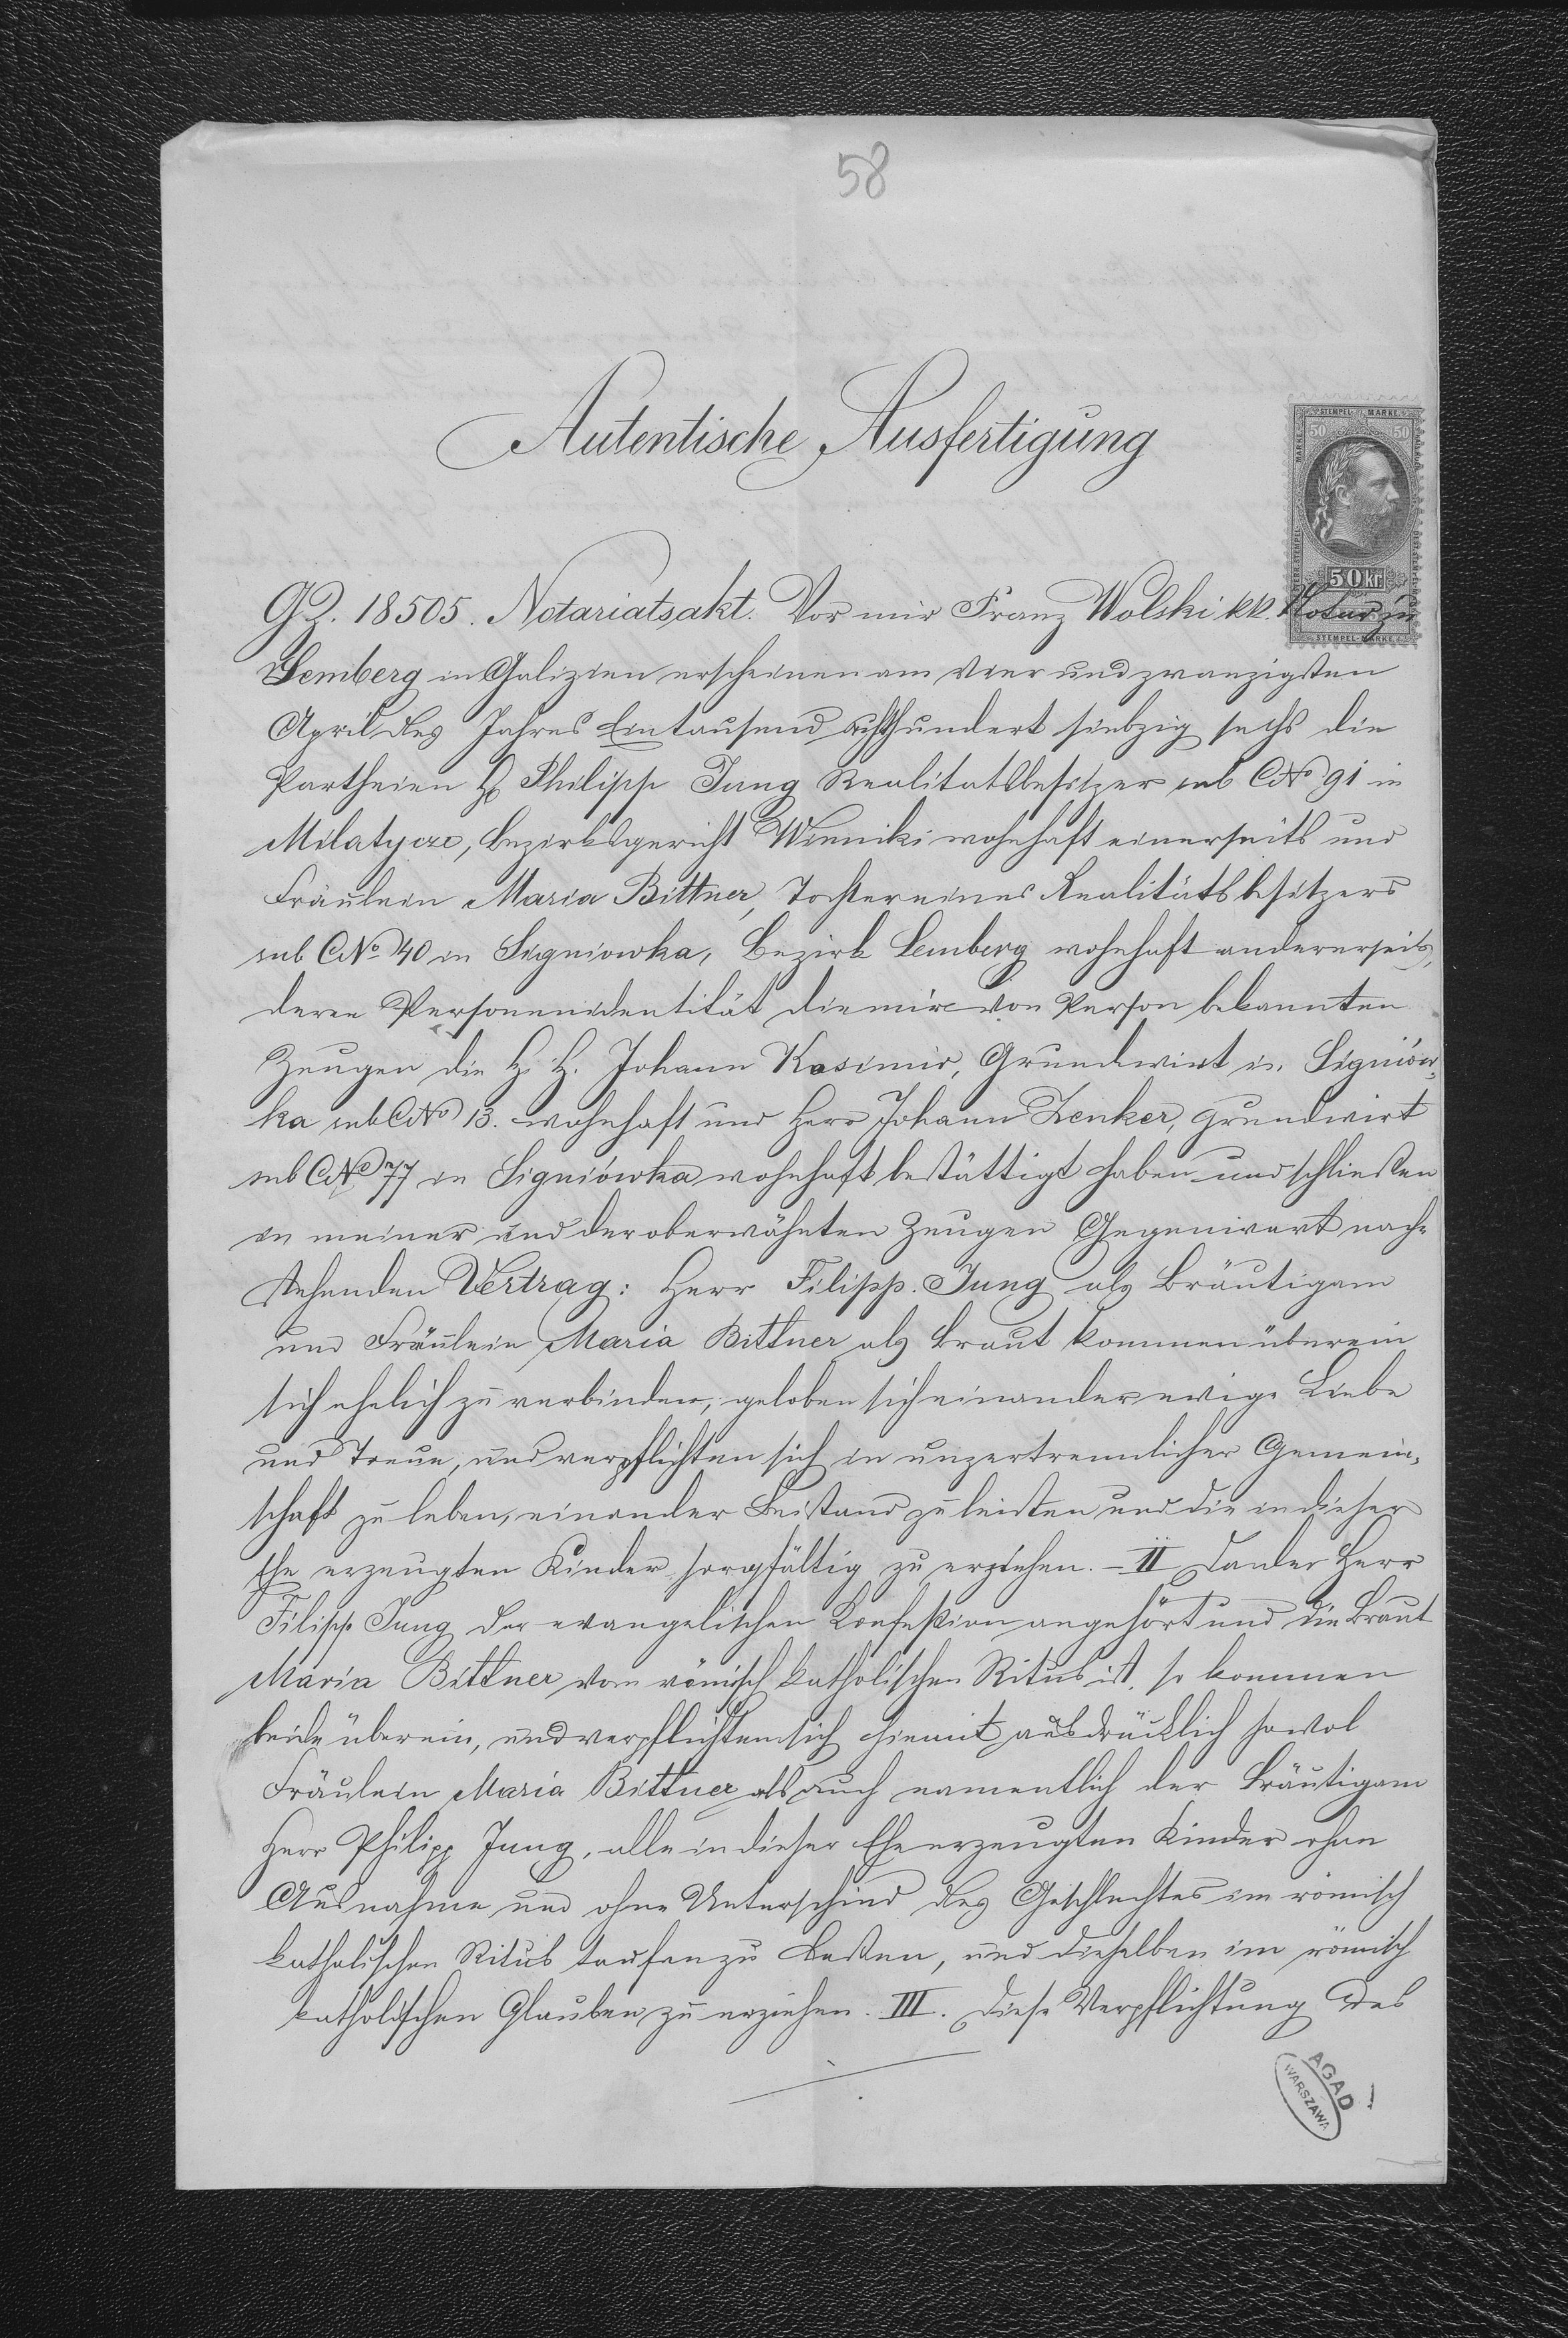 58
Autentische Ausfertigung
STEMPEL-MARKE
50 50
50 kr
STEMPEL-MARKE
GZ. 18505. Notariatsakt. Vor mir Franz Wolski kk. Notar zu
Lemberg in Galizien erscheinen am vier und zwanzigsten
April des Jahres Eintausend achthundert siebzig sechs die
Partheien H Philipp Jung Realitätsbesitzer sub CNo 91 in
Milatycze, Bezirksgericht Winniki wohnhaft einerseits und
Fräulein Maria Bittner, Tochter eines Realitätsbesitzers
sub CNo 40 in Signiowka, Bezirk Lemberg wohnhaft andererseits,
deren Personenidentität die mir von Person bekannten
Zeugen die H. H. Johann Kasimir, Grundwirt in Signiów-
ka sub CNo 13. wohnhaft und Herr Johann Zenker, Grundwirt
sub CNo 77 in Signiówka wohnhaft bestättigt haben und schließen
in meiner und der oberwähnten Zeugen Gegenwart nach-
stehenden Vertrag: Herr Filipp Jung als Bräutigam
und Fräulein Maria Bittner als Braut kommen überein
sich ehelich zu verbinden, geloben sich einander ewige Liebe
und Treue, und verpflichten sich in unzertrennlicher Gemein-
schaft zu leben, einander Beistand zu leisten und die in dieser
Ehe erzeugten Kinder sorgfältig zu erziehen. – II Da der Herr
Filipp Jung der evangelischen Konfeßion angehört und die Braut
Maria Bittner vom römisch katholischen Ritus ist, so kommen
beide überein, und verpflichten sich hiemit ausdrücklich sowol
Fräulein Maria Bittner als auch namentlich der Bräutigam
Herr Philipp Jung, alle in dieser Ehe erzeugten Kinder ohne
Ausnahme und ohne Unterschied des Geschlechtes im römisch
katholischen Ritus taufen zu laßen, und dieselben im römisch
katholischen Glauben zu erziehen. III. Diese Verpflichtung des
AGAD
WARSZAWA